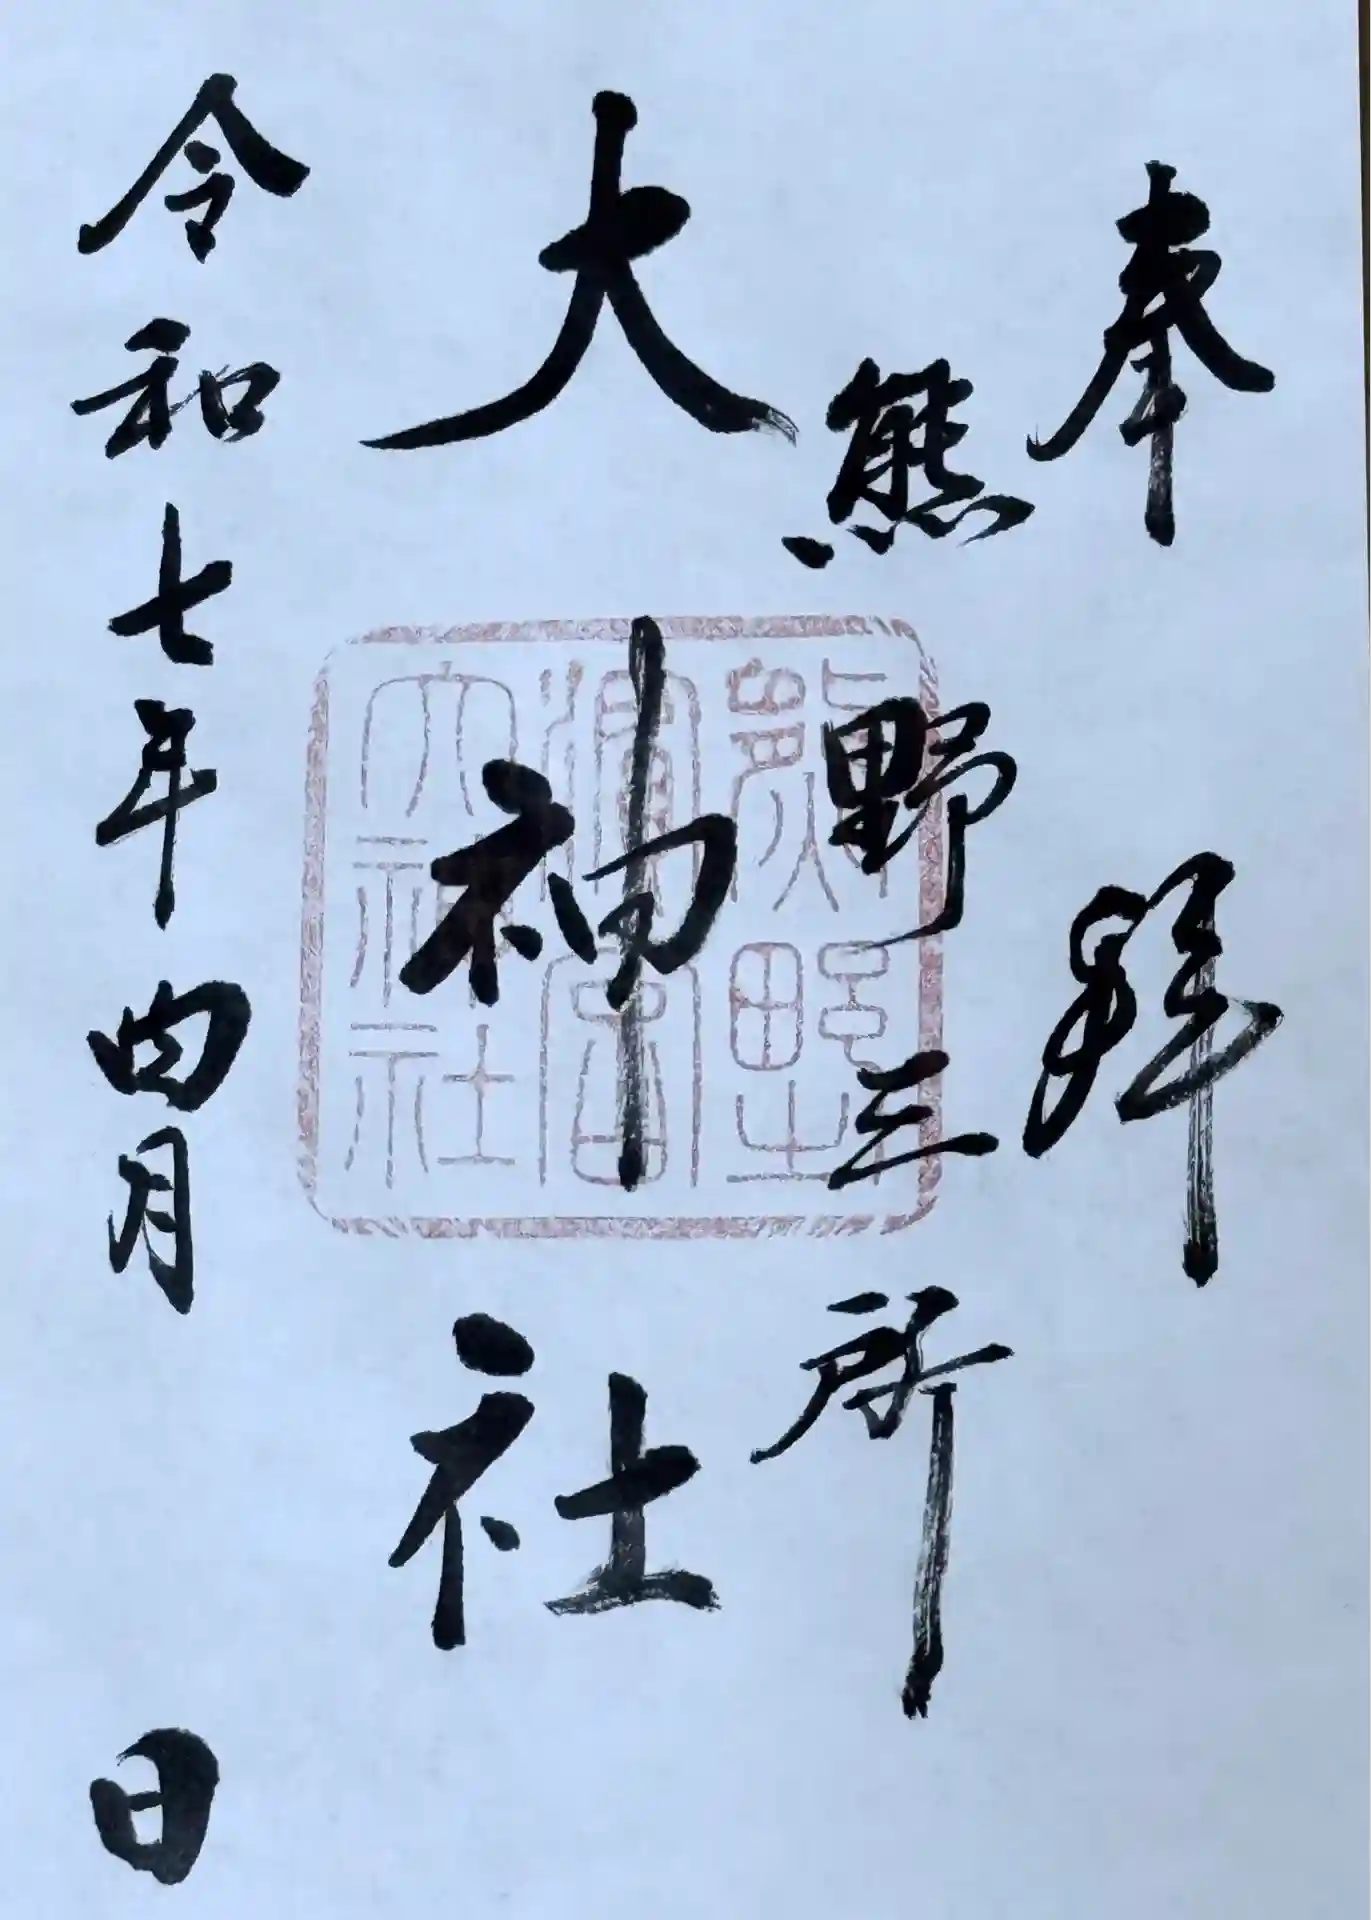 奉拝
熊野三所
大神社
令和七年四月 日
熊野
濱宮
大神社